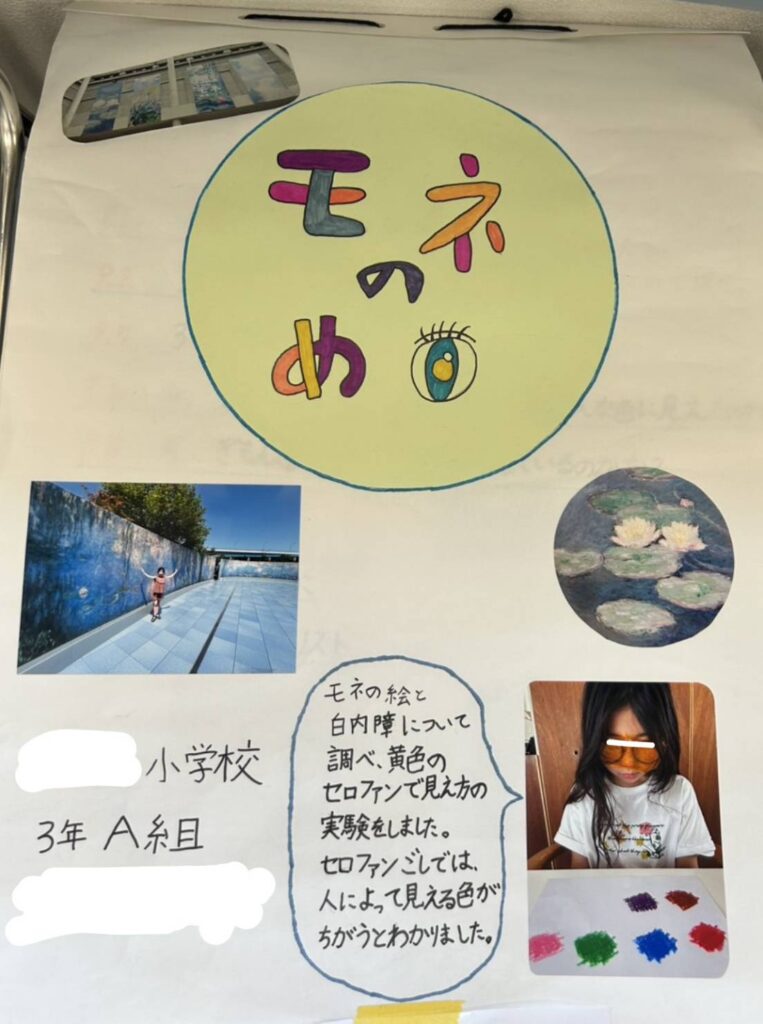 モネ
の
め
モネの絵と
白内障について
調べ、黄色の
セロファンで見え方の
実験をしました。
セロファンごしでは、
人によって見える色が
ちがうとわかりました。
小学校
3年 A組